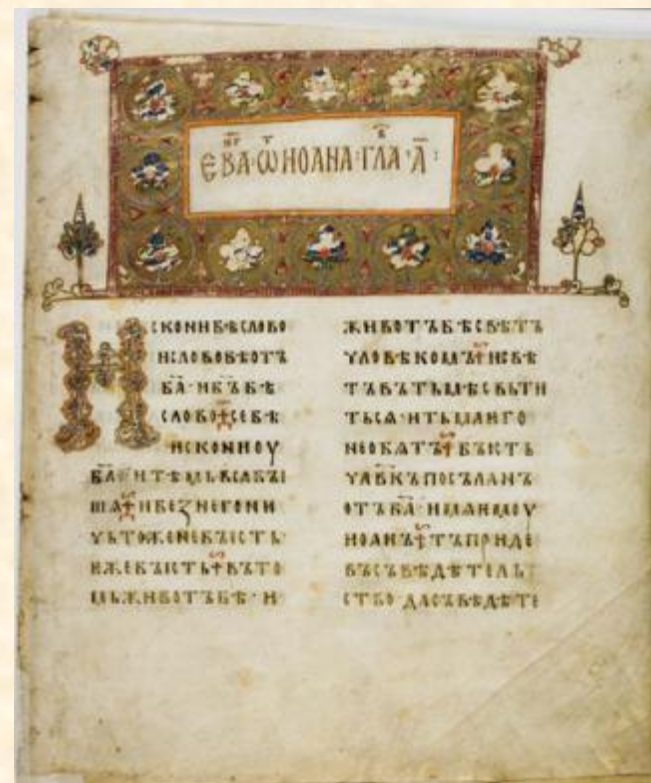 ЄВА҃Г · Ѿ ИОАНА · ГЛА҃В · А҃ :
ИСКОНИ БѢ СЛОВО
И СЛОВО БѢ ОТЪ
БА҃ · И БЪ҃ БѢ
СЛОВО СЕ БѢ
ИСКОНИ ОУ
БА҃ И ТѢМЬ ВСА БЫ
ША И БЕЗ НЕГО НИ
ЧЬТОЖЕ НЕ БЫСТЬ
ЕЖЕ БЫСТЬ ВЪ ТО
МЬ ЖИВОТЪ БѢ · И
ЖИВОТЪ БѢ СВѢТЪ
ЧЛОВѢКОМЪ И СВѢ
ТЪ ВЪ ТЬМѢ СВЬТИ
ТЬСѦ · И ТЬМА ѤГО
НЕ ОБѦТЪ БЫСТЬ
ЧЛ҃ВКЪ ПОСЪЛАНЪ
ОТЪ БА҃ · ИМѦ ѤМОУ
ИОАНЪ ТЪ ПРИДЕ
ВЪ СЪВѢДѢТЕЛЬ
СТВО ДА СЪВѢДѢТЕ